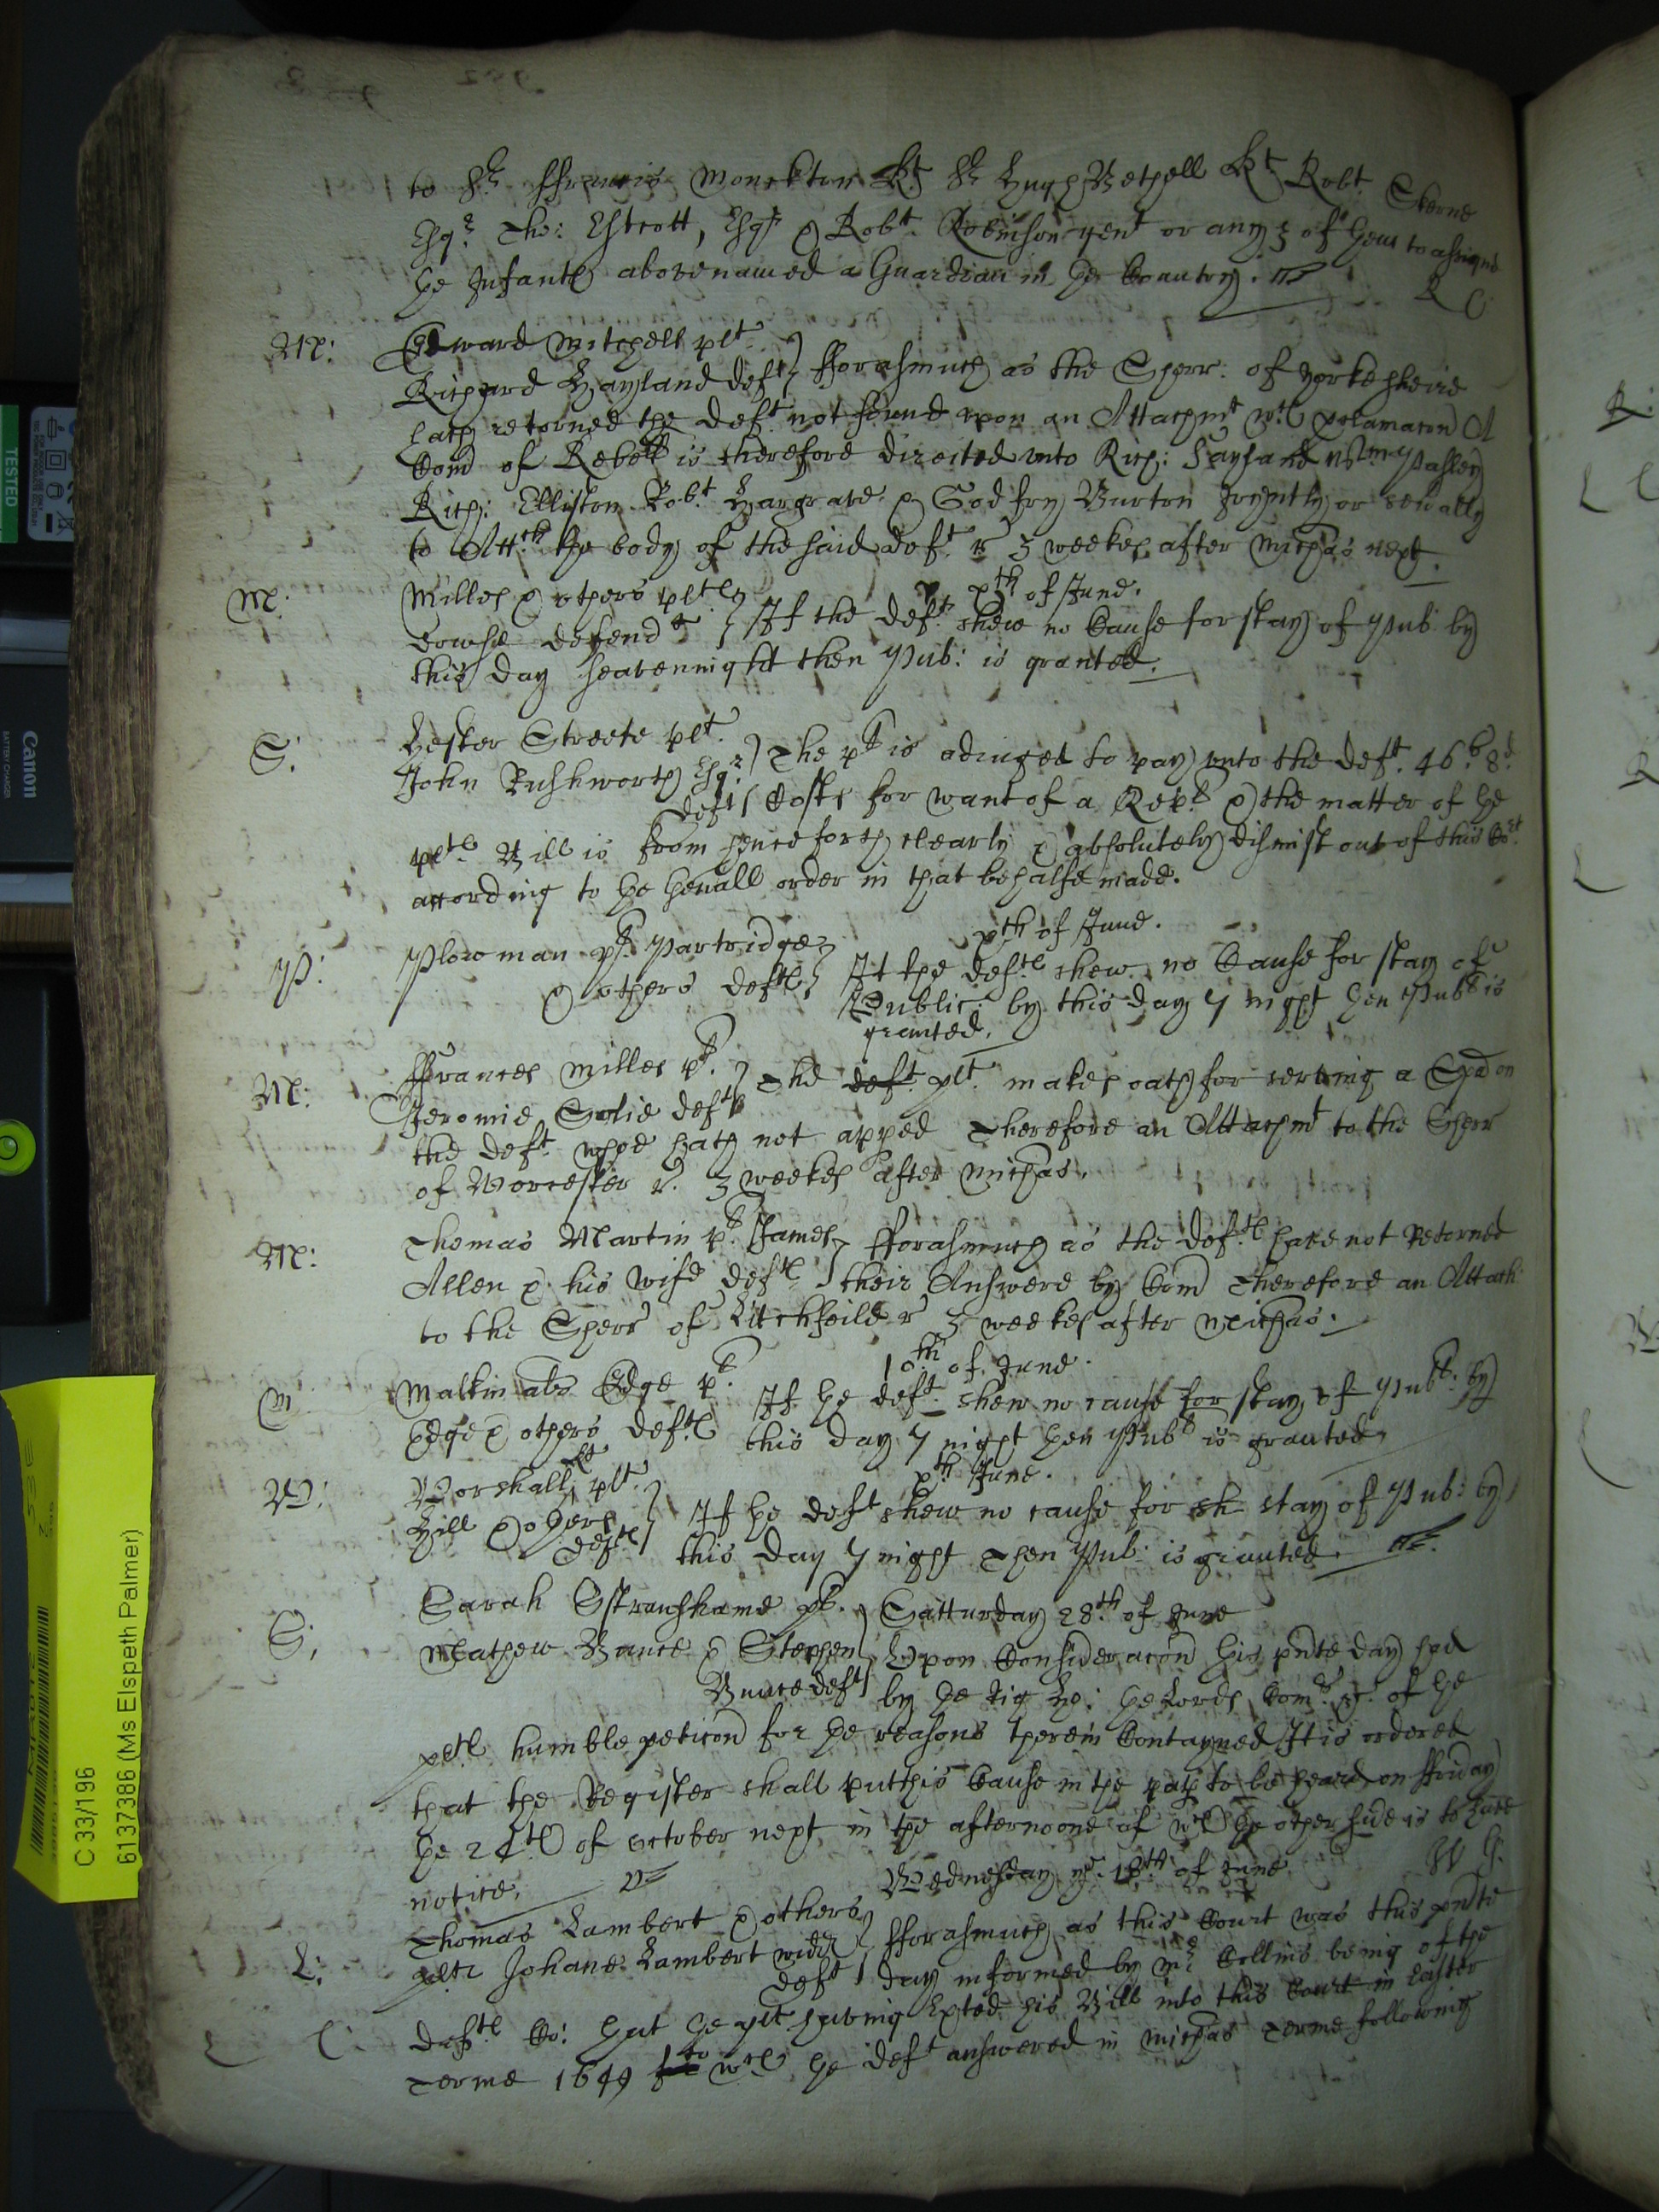 to Sr. ffrancis Monckton Kt. Sr. Hugh Bethell Kt Robt. Sterne
Esqr. Tho: Estcott, Esqr & Robt. Robinson gent or any 3 of them to assigne
the Infants abovenamed a Guardian in the Country.
R C
M: Edward Mitchell plt.
Richard Hayland deft fforasmuch as the Sherr: of Yorkesheire
hath retorned the deft. not found upon an Attachmt wth proclamacon A
Com of Rebell is therefore directed unto Rich: Wm Pashley
Rich: Elliston Robt. Hargrave & Godfry Burton joyntly or sevally
to Attch the body of the said deft. r 3 weekes after Michas next.
M: Milles & others plts xth of June.
defendt If the deft. shew no Cause for stay of Pub: by
this day seavennight then Pub: is granted.
S: Hester Streete plt.
John Rushworth Esqr. The plt is adiuged to pay unto the deft. 46s. 8d.
deft Costs for want of a Repl & the matter of the
plts Bill is from henceforth clearly & absolutely dismist out of this Cort
according to the genall order in that behalfe made.
xth of June.
P: Plowman plt. Partridge
& others defts If the defts shew no Cause for stay of
Public by this day 7 night then Publ is
granted.
M: ffrances Milles plt.
Jeromie deft The deft. plt. makes oath for serving a Spa on
the deft. whoe hath not apped Therefore an Attachmt to the Sherr
of Worcester r. 3 weekes after Michas.
M: Thomas Martin plt. James fforasmuch as the defts have not Retorned
Allen & his Wife defts their Answere by Com Therefore an Attach
to the Sherr of Litchfeild r 3 weekes after Michas.
10th of June.
M Malkin als Edge plt.
Edge & others defts If the deft. shew no cause for stay of Publ: by
this day 7 night then Publ is granted
xth June.
W: Worshall Kt plt.
Hill & others If the deft shew no cause for sh stay of Pub: by
defts this day 7 night Then Pub: is granted.
S: Sarah plt. Satturday 28th of June
Mathew Bunce & Stephen Upon Consideracon this pnte day had
Bunce deft by the rig Ho: the Lords Comrs. &c. of the
plts humble peticon for the reasons therein Contayned It is ordered
that the Register shall put this Cause in the pap to be heard on ffriday
the 24th of October next in the afternoone of wch the other side is to have
notice.
Wednesday ye. 18th of June.
W G.
L: Thomas Lambert & others
plts Johane Lambert widd fforasmuch as this Court was this pnte
deft day informed by Mr Collins being of the
C: defts Co: that the plt having Exted his Bill into this Court in Easter
Terme 1649 to wch the deft answered in Michas Terme following
TESTED
Canon
BATTERY CHARGER
C 33/196
6137386 (Ms Elspeth Palmer)